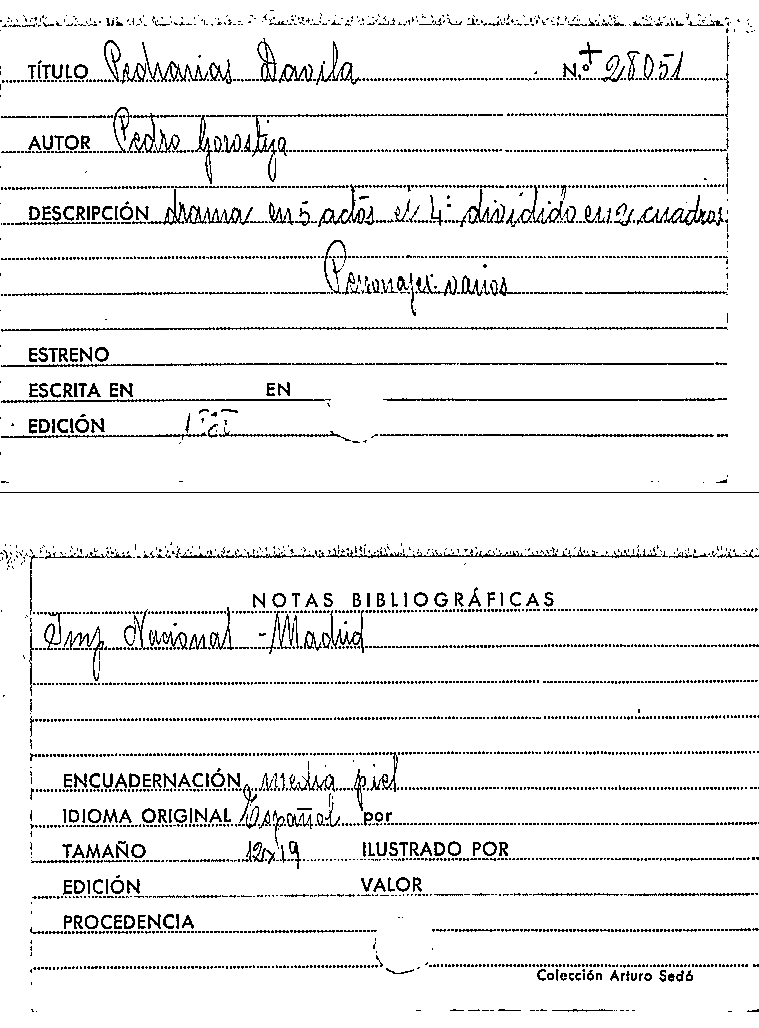 TÍTULO Pedrarias Davila N.º + 28051
AUTOR Pedro Gorostiza
DESCRIPCIÓN drama en 5 actos el 4º dividido en 2 cuadros
Personajes varios
ESTRENO
ESCRITA EN EN
EDICIÓN
NOTAS BIBLIOGRÁFICAS
Imp. Nacional - Madrid
ENCUADERNACIÓN media piel
IDIOMA ORIGINAL Español por
TAMAÑO 12x19 ILUSTRADO POR
EDICIÓN VALOR
PROCEDENCIA
Colección Arturo Sedó